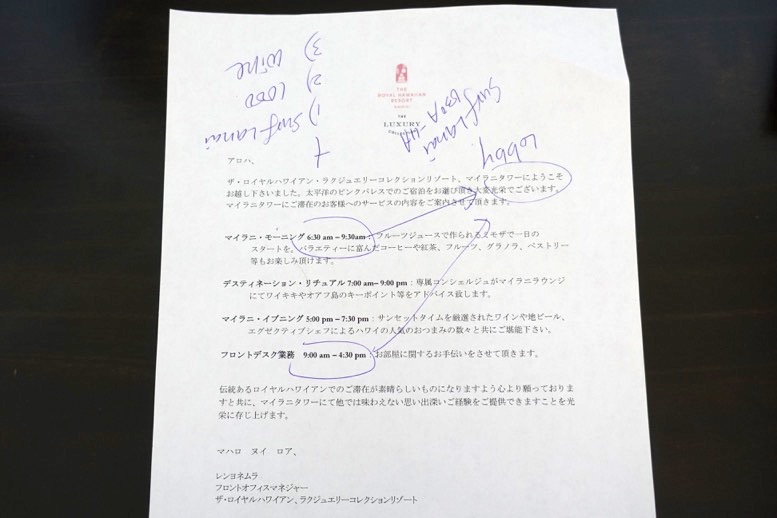 3)
Wine
2)
1)
Surf Lanai
Surf Lanai
Lobby
THE
ROYAL HAWAIIAN
RESORT
THE
LUXURY
アロハ、
ザ・ロイヤルハワイアン・ラクジュエリーコレクションリゾート、マイラニタワーにようこそ
お越し下さいました。太平洋のピンクパレスでのご宿泊をお選び頂き大変光栄でございます。
マイラニタワーにご滞在のお客様へのサービスの内容をご案内させて頂きます。
マイラニ・モーニング 6:30 am – 9:30am : フルーツジュースで作られるミモザで一日の
スタートを。バラエティーに富んだコーヒーや紅茶、フルーツ、グラノラ、ペストリー
等もお楽しみ頂けます。
デスティネーション・リチュアル 7:00 am– 9:00 pm : 専属コンシェルジュがマイラニラウンジ
にてワイキキやオアフ島のキーポイント等をアドバイス致します。
マイラニ・イブニング 5:00 pm – 7:30 pm : サンセットタイムを厳選されたワインや地ビール、
エグゼクティブシェフによるハワイの人気のおつまみの数々と共にご堪能下さい。
フロントデスク業務 9:00 am – 4:30 pm : お部屋に関するお手伝いをさせて頂きます。
伝統あるロイヤルハワイアンでのご滞在が素晴らしいものになりますよう心より願っておりま
すと共に、マイラニタワーにて他では味わえない思い出深いご経験をご提供できますことを光
栄に存じ上げます。
マハロ ヌイ ロア、
レンヨネムラ
フロントオフィスマネジャー
ザ・ロイヤルハワイアン、ラクジュエリーコレクションリゾート